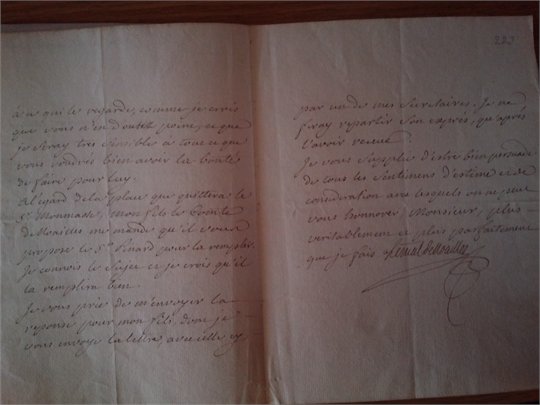 à ce qui le regarde, comme je crois
que vous n'en doutés point, et que
je seray tres sensible à tout ce que
vous voudres bien avoir la bonté
de faire pour luy.
A l'egard de la place que quittera le
Sr. mon fils le Comte
de Noailles me mande qu'il vous a
proposé le Sr. pour la remplir.
Je connois le sujet et je crois qu'il
la remplira bien.
Je vous prie de m'envoyer la
reponse pour mon fils, dont je
vous envoye la lettre, avec celle cy
223
par un de mes Secretaires. Je ne
feray repartir son exprés, qu'aprés
l'avoir receue.
Je vous suplie d'estre bien persuadé
de tous les sentimens d'estime et de
consideration avec lesquels on ne peut
vous honnorer, Monsieur, plus
veritablement et plus parfaitement
que je fais de Noailles